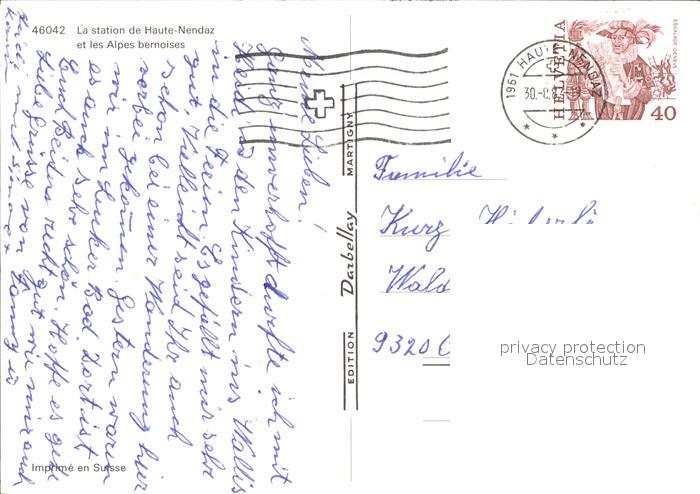 46042 La station de Haute-Nendaz
et les Alpes bernoises
Meine Lieben!
Ganz unverhofft durfte ich mit
Heidi u den Kindern ins Wallis
in die Ferien. Es gefällt mir sehr
gut. Vielleicht seid Ihr auch
schon bei einer Wanderung hier
vorbei gekommen. Gestern waren
wir im Leuker Bad. Dort ist
es auch sehr schön. Hoffe es gehe
Euch Beiden recht gut wie mir auch
Liebe Grüsse von
Imprimé en Suisse
EDITION Darbellay MARTIGNY
1961 HAUTE-NENDAZ
30.-8.
HELVETIA
ESCALADE GENÈVE
40
Familie
Kurz
Wald
9320
privacy protection
Datenschutz